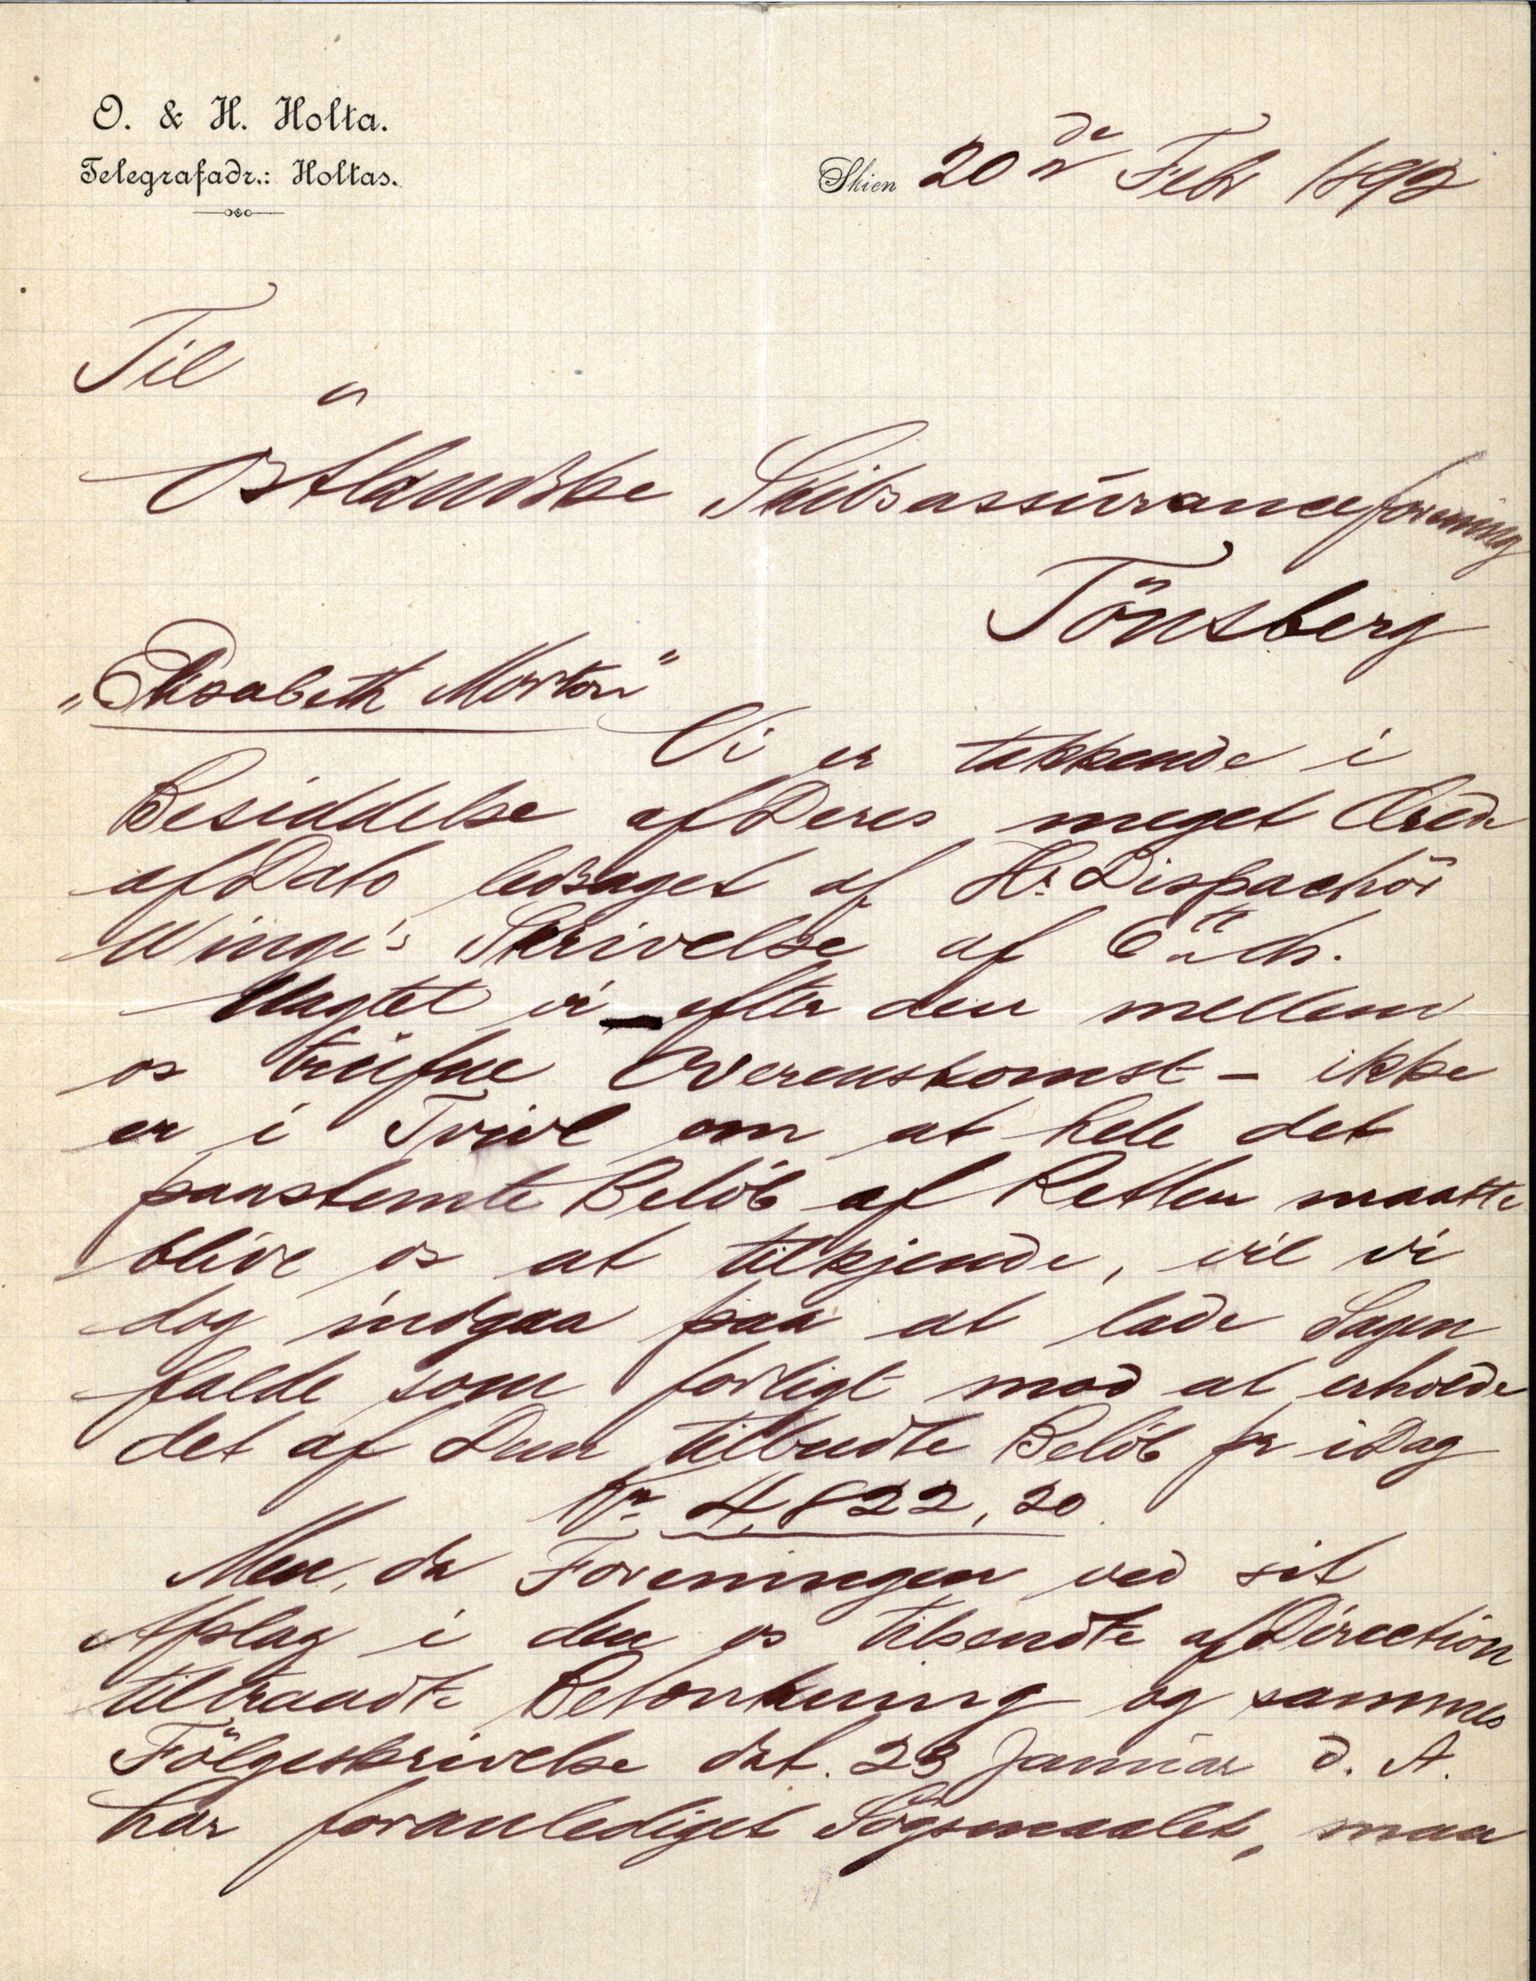 O. & H. Holta.
Telegrafadr.: Holtas.
Skien 20de Febr 1892
Til
Østlandske Skibsassuranceforening
Tönsberg
"Elisabeth Morton"
Vi er takkende i
Besiddelse af Deres meget Ærede
af Dato ledsaget af Hr Dispachör
Winge's Skrivelse af 6te ds.
Uagtet vi – efter den mellem
os trufne Overenskomst – ikke
er i Tvivl om at hele det
paastemte Belöb af Retten maatte
blive os at tilkjende, vil vi
dog indgaa paa at lade Sagen
falde som forligt mod at erholde
det af Dem tilbudte Belöb pr idag
Kr. 4,822,20.
Men, da Foreningen ved sit
Afslag i den os tilsendte af Direction
tiltraadte Betænkning og sammes
Fölgeskrivelse dat. 23 Januar d. A.
har foranlediget Sögsmaalet, maa